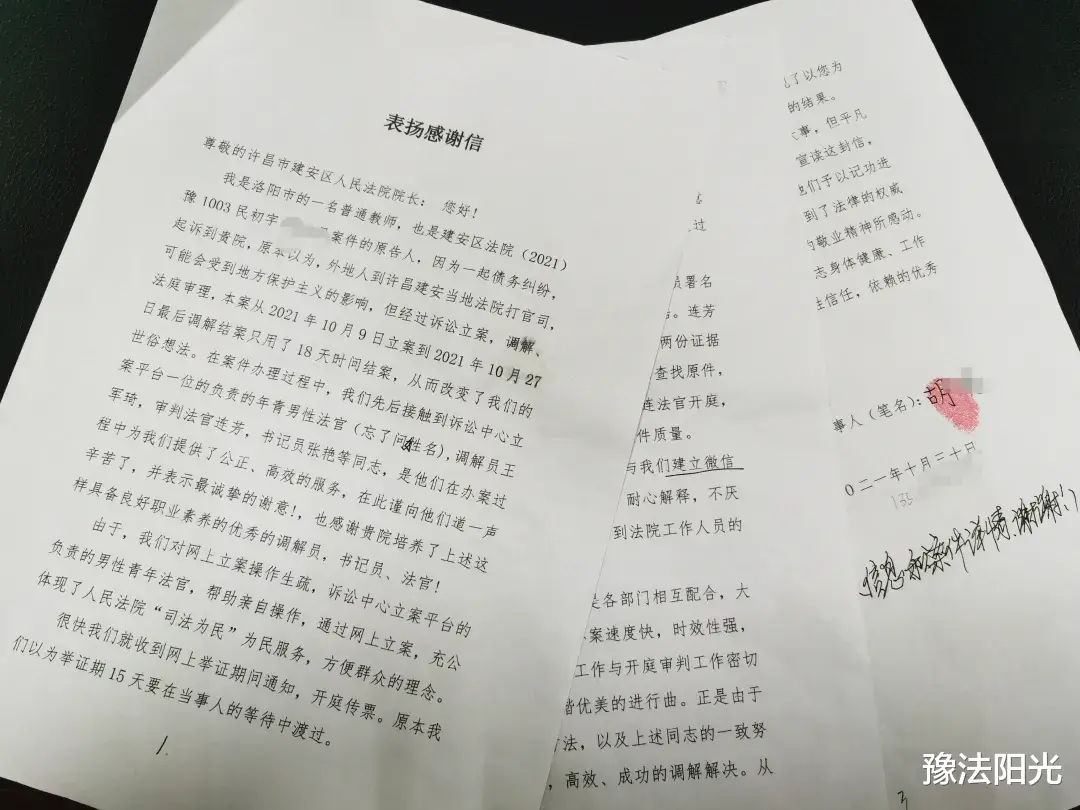 表扬感谢信
尊敬的许昌市建安区人民法院院长： 您好！
我是洛阳市的一名普通教师，也是建安区法院（2021）
豫 1003 民初字 案件的原告人，因为一起债务纠纷，
起诉到贵院，原本以为，外地人到许昌建安当地法院打官司，
可能会受到地方保护主义的影响，但经过诉讼立案，调解、
法庭审理，本案从 2021 年 10 月 9 日立案到 2021 年 10 月 27
日最后调解结案只用了 18 天时间结案，从而改变了我们的
世俗想法。在案件办理过程中，我们先后接触到诉讼中心立
案平台一位的负责的年青男性法官（忘了问姓名），调解员王
军琦，审判法官连芳，书记员张艳等同志，是他们在办案过
程中为我们提供了公正、高效的服务，在此谨向他们道一声
辛苦了，并表示最诚挚的谢意！，也感谢贵院培养了上述这
样具备良好职业素养的优秀的调解员，书记员、法官！
由于，我们对网上立案操作生疏，诉讼中心立案平台的
负责的男性青年法官，帮助亲自操作，通过网上立案，充公
体现了人民法院“司法为民”为民服务，方便群众的理念。
很快我们就收到网上举证期间通知，开庭传票。原本我
们以为举证期 15 天要在当事人的等待中渡过。
1.
过
员署名
。连芳
两份证据
查找原件，
连法官开庭，
件质量。
与我们建立微信
耐心解释，不厌
到法院工作人员的
是各部门相互配合，大
案速度快，时效性强，
工作与开庭审判工作密切
谐优美的进行曲。正是由于
法，以及上述同志的一致努
，高效、成功的调解解决。从
了以您为
的结果。
事，但平凡
宣读这封信，
他们予以记功进
到了法律的权威
的敬业精神所感动。
志身体健康、工作
信任，依赖的优秀
事人（笔名）：胡
0 二一年十月二十日
信息和案件详情.谢谢!
3
豫法阳光